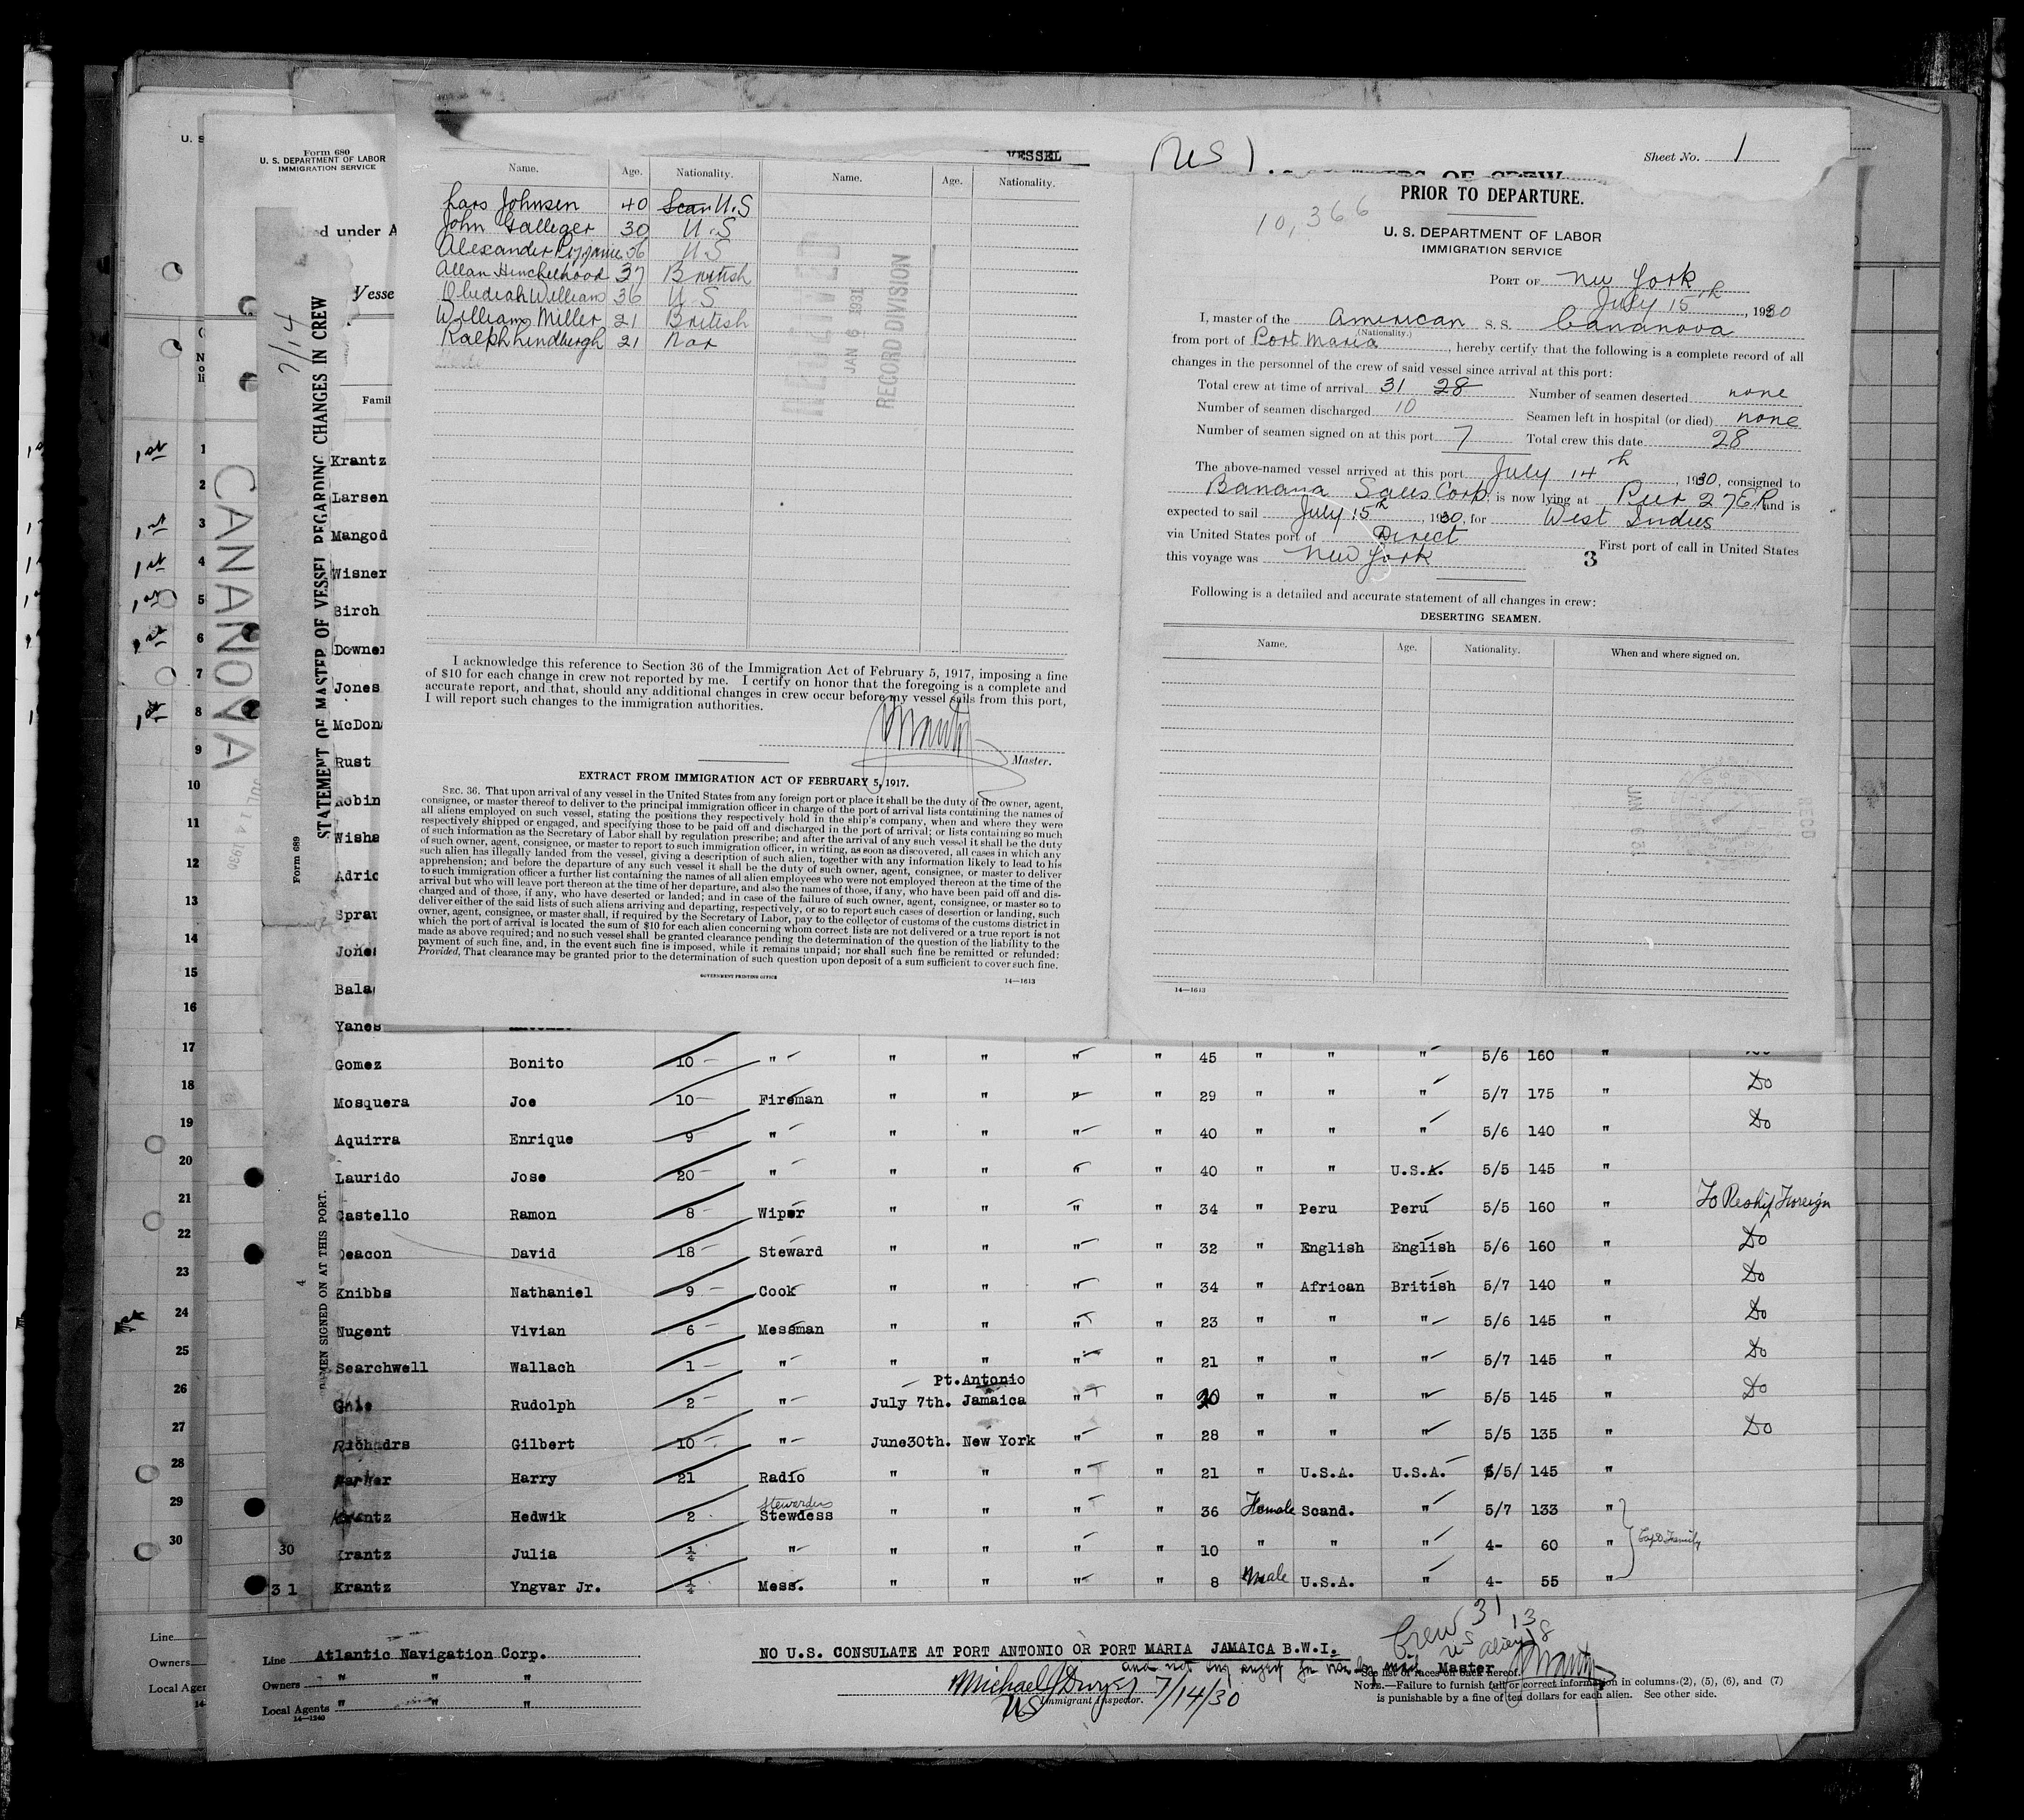 U. S
Form 680
U. S. DEPARTMENT OF LABOR
IMMIGRATION SERVICE
VESSEL
Name. Age. Nationality. Name. Age. Nationality.
Lars Johnsen 40 Scan U.S
John Galleger 30 U.S
Alexander 36 U S
Allan Hinchelhood 37 British
Obediah Williams 36 U S
William Miller 21 British
Ralph Lindbergh 21 Nor
RECEIVED
JAN 6 1931
RECORD DIVISION
I acknowledge this reference to Section 36 of the Immigration Act of February 5, 1917, imposing a fine
of $10 for each change in crew not reported by me. I certify on honor that the foregoing is a complete and
accurate report, and that, should any additional changes in crew occur before my vessel sails from this port,
I will report such changes to the immigration authorities.
Master.
EXTRACT FROM IMMIGRATION ACT OF FEBRUARY 5, 1917.
SEC. 36. That upon arrival of any vessel in the United States from any foreign port or place it shall be the duty of the owner, agent,
consignee, or master thereof to deliver to the principal immigration officer in charge of the port of arrival lists containing the names of
all aliens employed on such vessel, stating the positions they respectively hold in the ship's company, when and where they were
respectively shipped or engaged, and specifying those to be paid off and discharged in the port of arrival; or lists containing so much
of such information as the Secretary of Labor shall by regulation prescribe; and after the arrival of any such vessel it shall be the duty
of such owner, agent, consignee, or master to report to such immigration officer, in writing, as soon as discovered, all cases in which any
such alien has illegally landed from the vessel, giving a description of such alien, together with any information likely to lead to his
apprehension; and before the departure of any such vessel it shall be the duty of such owner, agent, consignee, or master to deliver
to such immigration officer a further list containing the names of all alien employees who were not employed thereon at the time of the
arrival but who will leave port thereon at the time of her departure, and also the names of those, if any, who have been paid off and dis-
charged and of those, if any, who have deserted or landed; and in case of the failure of such owner, agent, consignee, or master so to
deliver either of the said lists of such aliens arriving and departing, respectively, or so to report such cases of desertion or landing, such
owner, agent, consignee, or master shall, if required by the Secretary of Labor, pay to the collector of customs of the customs district in
which the port of arrival is located the sum of $10 for each alien concerning whom correct lists are not delivered or a true report is not
made as above required; and no such vessel shall be granted clearance pending the determination of the question of the liability to the
payment of such fine, and, in the event such fine is imposed, while it remains unpaid; nor shall such fine be remitted or refunded:
Provided, That clearance may be granted prior to the determination of such question upon deposit of a sum sufficient to cover such fine.
GOVERNMENT PRINTING OFFICE
14—1613
(US) Sheet No. 1
PRIOR TO DEPARTURE.
10,366
U. S. DEPARTMENT OF LABOR
IMMIGRATION SERVICE
PORT OF New York
July 15th, 1930
I, master of the American S. S. Cananova
(Nationality.)
from port of Port Maria, hereby certify that the following is a complete record of all
changes in the personnel of the crew of said vessel since arrival at this port:
Total crew at time of arrival 31 28 Number of seamen deserted none
Number of seamen discharged 10 Seamen left in hospital (or died) none
Number of seamen signed on at this port 7 Total crew this date 28
The above-named vessel arrived at this port July 14th, 1930, consigned to
Banana Sales Corp. is now lying at Pier 27 ER and is
expected to sail July 15th, 1930, for West Indies
via United States port of Direct First port of call in United States
this voyage was New York 3
Following is a detailed and accurate statement of all changes in crew:
DESERTING SEAMEN.
Name. Age. Nationality. When and where signed on.
14—1613
7/14
STATEMENT OF MASTER OF VESSEL REGARDING CHANGES IN CREW
Form 689
CANANOVA
JUL 14 1930
4
SEAMEN SIGNED ON AT THIS PORT.
Vesse
Famil
1st 1 Krantz
2 Larsen
3 Mangod
1st 4 Wisner
5 Birch
1st 6 Downer
7 Jones
8 McDon
9 Rust
10 Robin
11 Wisha
12 Adric
13 Sprau
14 Jones
15 Bala
16 Yanes
17 Gomez Bonito 10 " " " " " 45 " " " 5/6 160 "
18 Mosquera Joe 10 Fireman " " " " 29 " " " 5/7 175 " Do
19 Aquirra Enrique 9 " " " " " 40 " " " 5/6 140 " Do
20 Laurido Jose 20 " " " " " 40 " " U.S.A. 5/5 145 "
21 Castello Ramon 8 Wiper " " " " 34 " Peru Peru 5/5 160 " To Reship Foreign
22 Deacon David 18 Steward " " " " 32 " English English 5/6 160 " Do
23 Knibbs Nathaniel 9 Cook " " " " 34 " African British 5/7 140 " Do
24 Nugent Vivian 6 Messman " " " " 23 " " " 5/6 145 " Do
25 Searchwell Wallach 1 " " " " " 21 " " " 5/7 145 " Do
Pt. Antonio
26 Rudolph 2 " July 7th. Jamaica " " 30 " " " 5/5 145 " Do
27 Richadrs Gilbert 10 " June30th. New York " " 28 " " " 5/5 135 " Do
28 Harry 21 Radio " " " " 21 " U.S.A. U.S.A. 5/5/ 145 "
Stewardess
29 Krantz Hedwik 2 Stewdess " " " " 36 Female Scand. " 5/7 133 "
30 30 Krantz Julia ¼ " " " " " 10 " " " 4- 60 " Capt Family
31 Krantz Yngvar Jr. ¼ Mess. " " " " 8 Male U.S.A. " 4- 55 "
Line
Owners
Local Agen
Line Atlantic Navigation Corp.
Owners " " "
Local Agents " " "
14—1240
NO U.S. CONSULATE AT PORT ANTONIO OR PORT MARIA JAMAICA B.W.I.
Crew 31
US 13
alien 18
Master
Michael J Dwyer 7/14/30
US Immigrant Inspector.
See list of races on back hereof.
NOTE.—Failure to furnish full or correct information in columns (2), (5), (6), and (7)
is punishable by a fine of ten dollars for each alien. See other side.